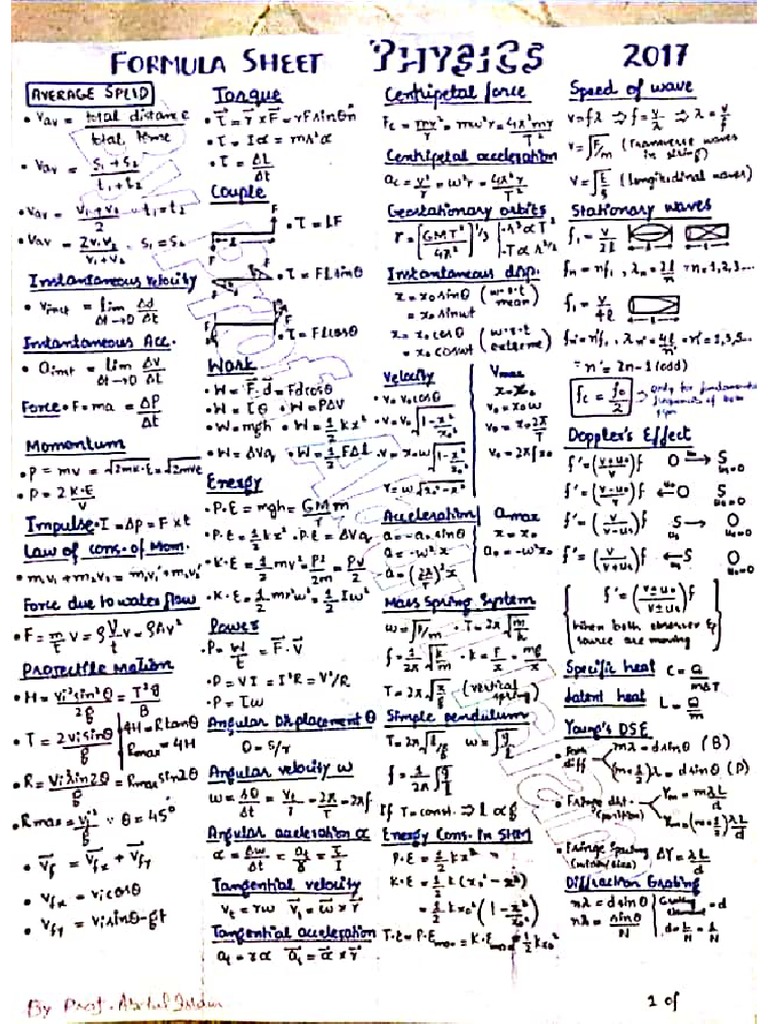 FORMULA SHEET PHYSICS 2017
AVERAGE SPEED
• Vav = total distance / total time
• Vav = S₁+S₂ / t₁+t₂
• Vav = V₁+V₂ / 2 • t₁=t₂
• Vav = 2V₁V₂ / V₁+V₂ • S₁=S₂
Instantaneous velocity
• Vinst = lim Δt→0 Δd/Δt
Instantaneous Acc.
• ainst = lim Δt→0 ΔV/Δt
Force • F = ma = ΔP/Δt
Momentum
• P = mv = √2mK.E =
• P = 2K.E/V
Impulse • I = ΔP = F×t
Law of cons. of Mom.
• m₁v₁ + m₂v₂ = m₁v₁' + m₂v₂'
Force due to water flow
• F = m/t V = ρ V/t v = ρAv²
Projectile Motion
• H = Vi²sin²θ/2g = T²g/8
• T = 2Visinθ/g
4H = Rtanθ
Rmax = 4H
• R = Vi²sin2θ/g = Rmax sin2θ
• Rmax = Vi²/g ∵ θ = 45°
• Vf = Vfx + Vfy
• Vfx = Vicosθ
• Vfy = Visinθ-gt
Torque
• τ = r × F = rFsinθn̂
• τ = Iα = mr²α
• τ = ΔL/Δt
Couple
• τ = lF
• τ = Flsinθ
• τ = Flcosθ
Work
• W = F.d = Fdcosθ
• W = τθ • W = PΔV
• W = mgh • W = 1/2 kx²
• W = ΔVq • W = 1/2 FΔl
Energy
• P.E = mgh = GMm/r
• P.E = 1/2 kx² • P.E = ΔVq
• K.E = 1/2 mv² = P²/2m = Pv/2
• K.E = 1/2 mr²w² = 1/2 Iw²
Power
• P = W/t = F.V
• P = VI = I²R = V²/R
• P = τw
Angular Displacement θ
θ = S/r
Angular velocity w
w = Δθ/Δt = Vt/r = 2π/T = 2πf
Angular acceleration α
α = Δw/Δt = at/r = τ/I
Tangential velocity
Vt = rw Vt = w × r
Tangential acceleration
at = rα at = α × r
Centripetal force
Fc = mv²/r = mw²r = 4π²mr/T²
Centripetal acceleration
ac = v²/r = w²r = 4π²r/T²
Geostationary orbits
r = [GMT²/4π²]^1/3
• r³ ∝ T²
• T ∝ r^3/2
Instantaneous disp.
x = x₀sinθ (w.r.t mean)
= x₀sinwt
x = x₀cosθ (w.r.t extreme)
= x₀coswt
Velocity Vmax
• V = V₀cosθ x = x₀
• V = V₀√1-x²/x₀² V₀ = x₀w
• V = x₀w√1-x²/x₀² V₀ = x₀2π/T
V = w√x₀²-x² V₀ = 2πfx₀
Acceleration amax
a = -a₀sinθ x = x₀
a = -w²x a₀ = -w²x₀
a = (2π/T)²x
Mass Spring System
w = √k/m • T = 2π√m/k
f = 1/2π √k/m • k = F/x = mg/x
T = 2π√x/g (vertical spring)
Simple pendulum
T = 2π√l/g w = √g/l
f = 1/2π √g/l
If T = const. ⇒ l ∝ g
Energy Cons. In SHM
P.E = 1/2 kx²
K.E = 1/2 k(x₀²-x²)
= 1/2 kx₀²(1-x²/x₀²)
T.E = P.Emax = K.Emax = 1/2 kx₀²
Speed of wave
v = fλ ⇒ f = v/λ ⇒ λ = v/f
V = √F/m (Transverse waves in string)
V = √E/ρ (longitudinal waves)
Stationary waves
f₁ = V/2l
fn = nf₁, λn = 2l/n • n = 1,2,3...
f₁ = V/4l
fn' = n'f₁, λn' = 4l/n' • n' = 1,3,5...
∵ n' = 2n-1 (odd)
fc = fo/2 → only for fundamental
Doppler's Effect
f' = (v+u₀/v)f O S us=0
f' = (v-u₀/v)f O S us=0
f' = (v/v-us)f S O u₀=0
f' = (v/v+us)f S O u₀=0
f' = (v±u₀/v±us)f
When both observer & source are moving
Specific heat C = Q/mΔT
Latent heat L = Q/m
Young's DSE
• Path diff mλ = dsinθ (B)
(m+1/2)λ = dsinθ (D)
• Fringe dist. (position) Ym = mλL/d
Ym = (m+1/2)λL/d
• Fringe spacing ΔY = λL/d
Diffraction Grating
nλ = dsinθ
nλ = sinθ/N
Grating element = d
d = L/N = 1/N
By Prof. Abdul
1 of